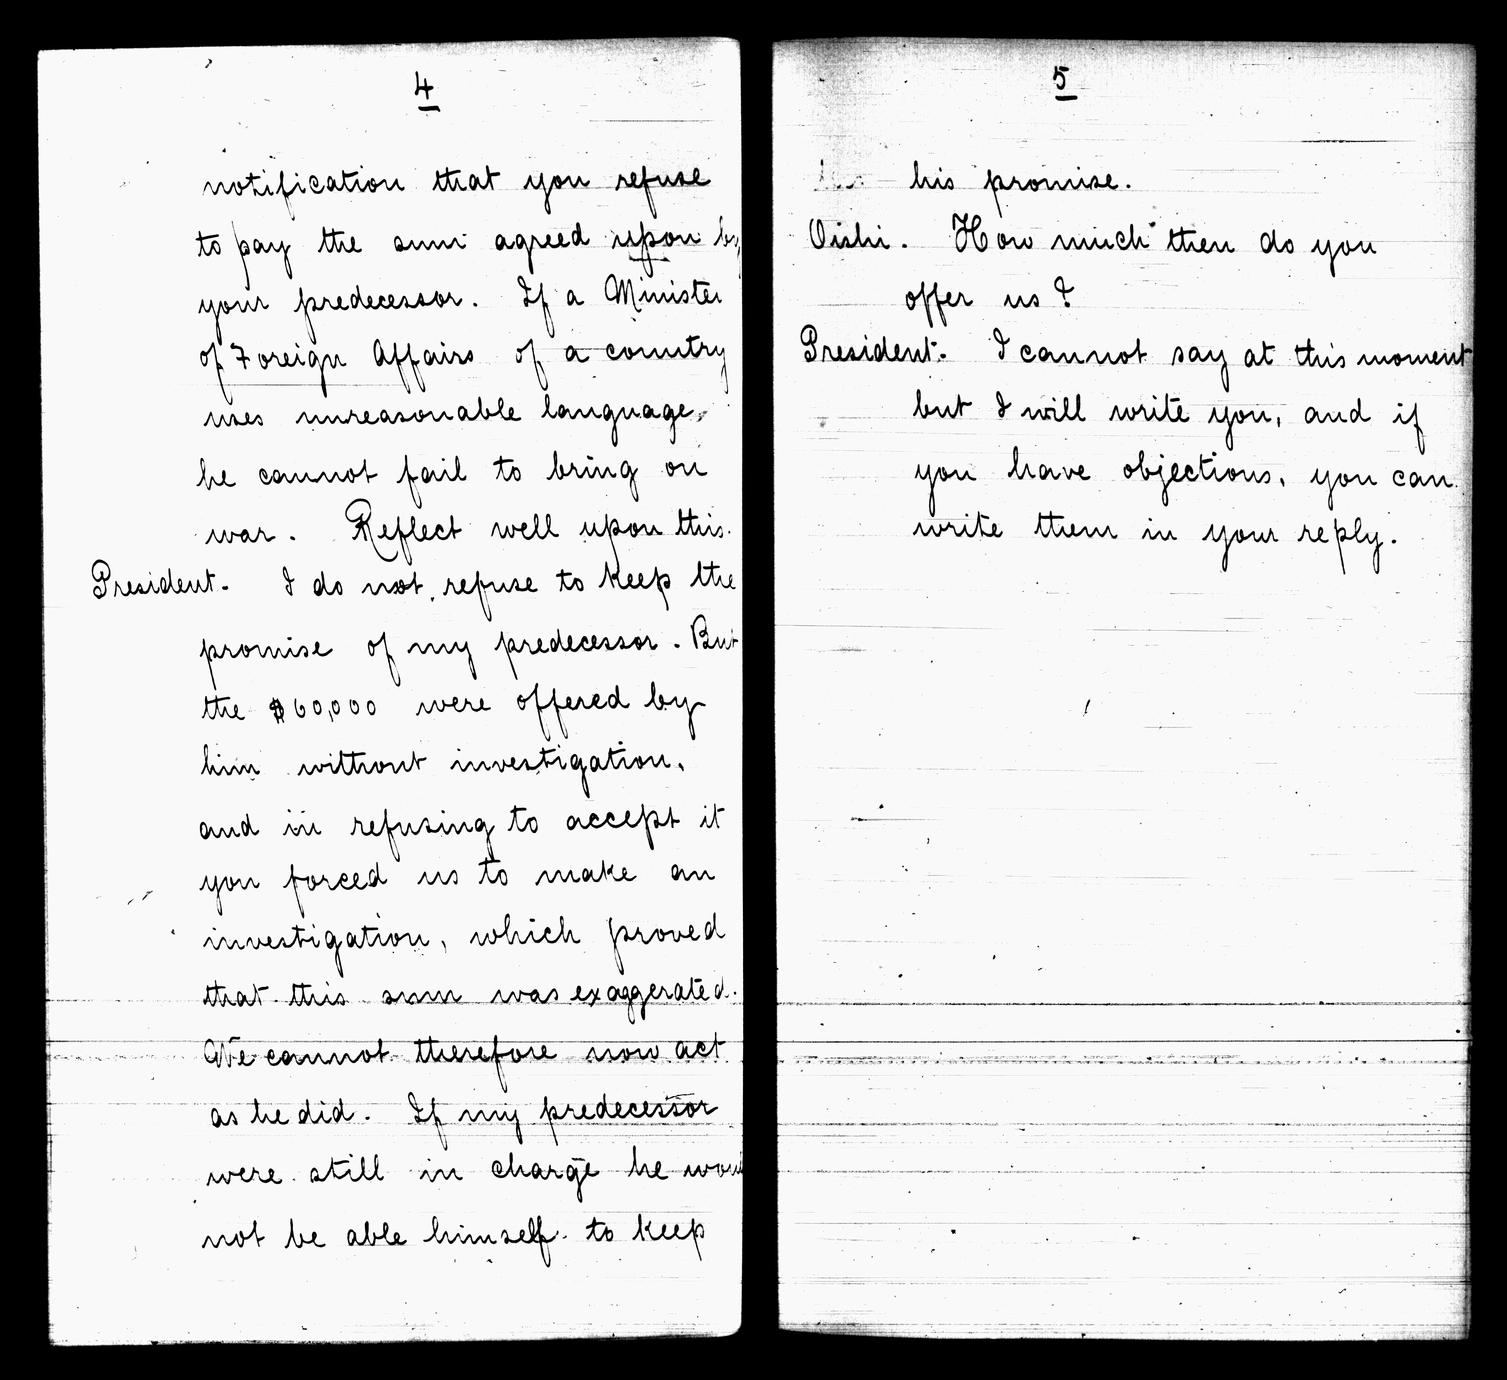 4
notification that you refuse
to pay the sum agreed upon by
your predecessor. If a Minister
of Foreign Affairs of a country
uses unreasonable language,
he cannot fail to bring on
war. Reflect well upon this.
President. I do not refuse to keep the
promise of my predecessor. But
the $60,000 were offered by
him without investigation,
and in refusing to accept it
you forced us to make an
investigation, which proved
that this sum was exaggerated.
We cannot therefore now act
as he did. If my predecessor
were still in charge he woul
not be able himself to keep
5
his promise.
Oishi. How much then do you
offer us?
President. I cannot say at this moment
but I will write you, and if
you have objections, you can
write them in your reply.